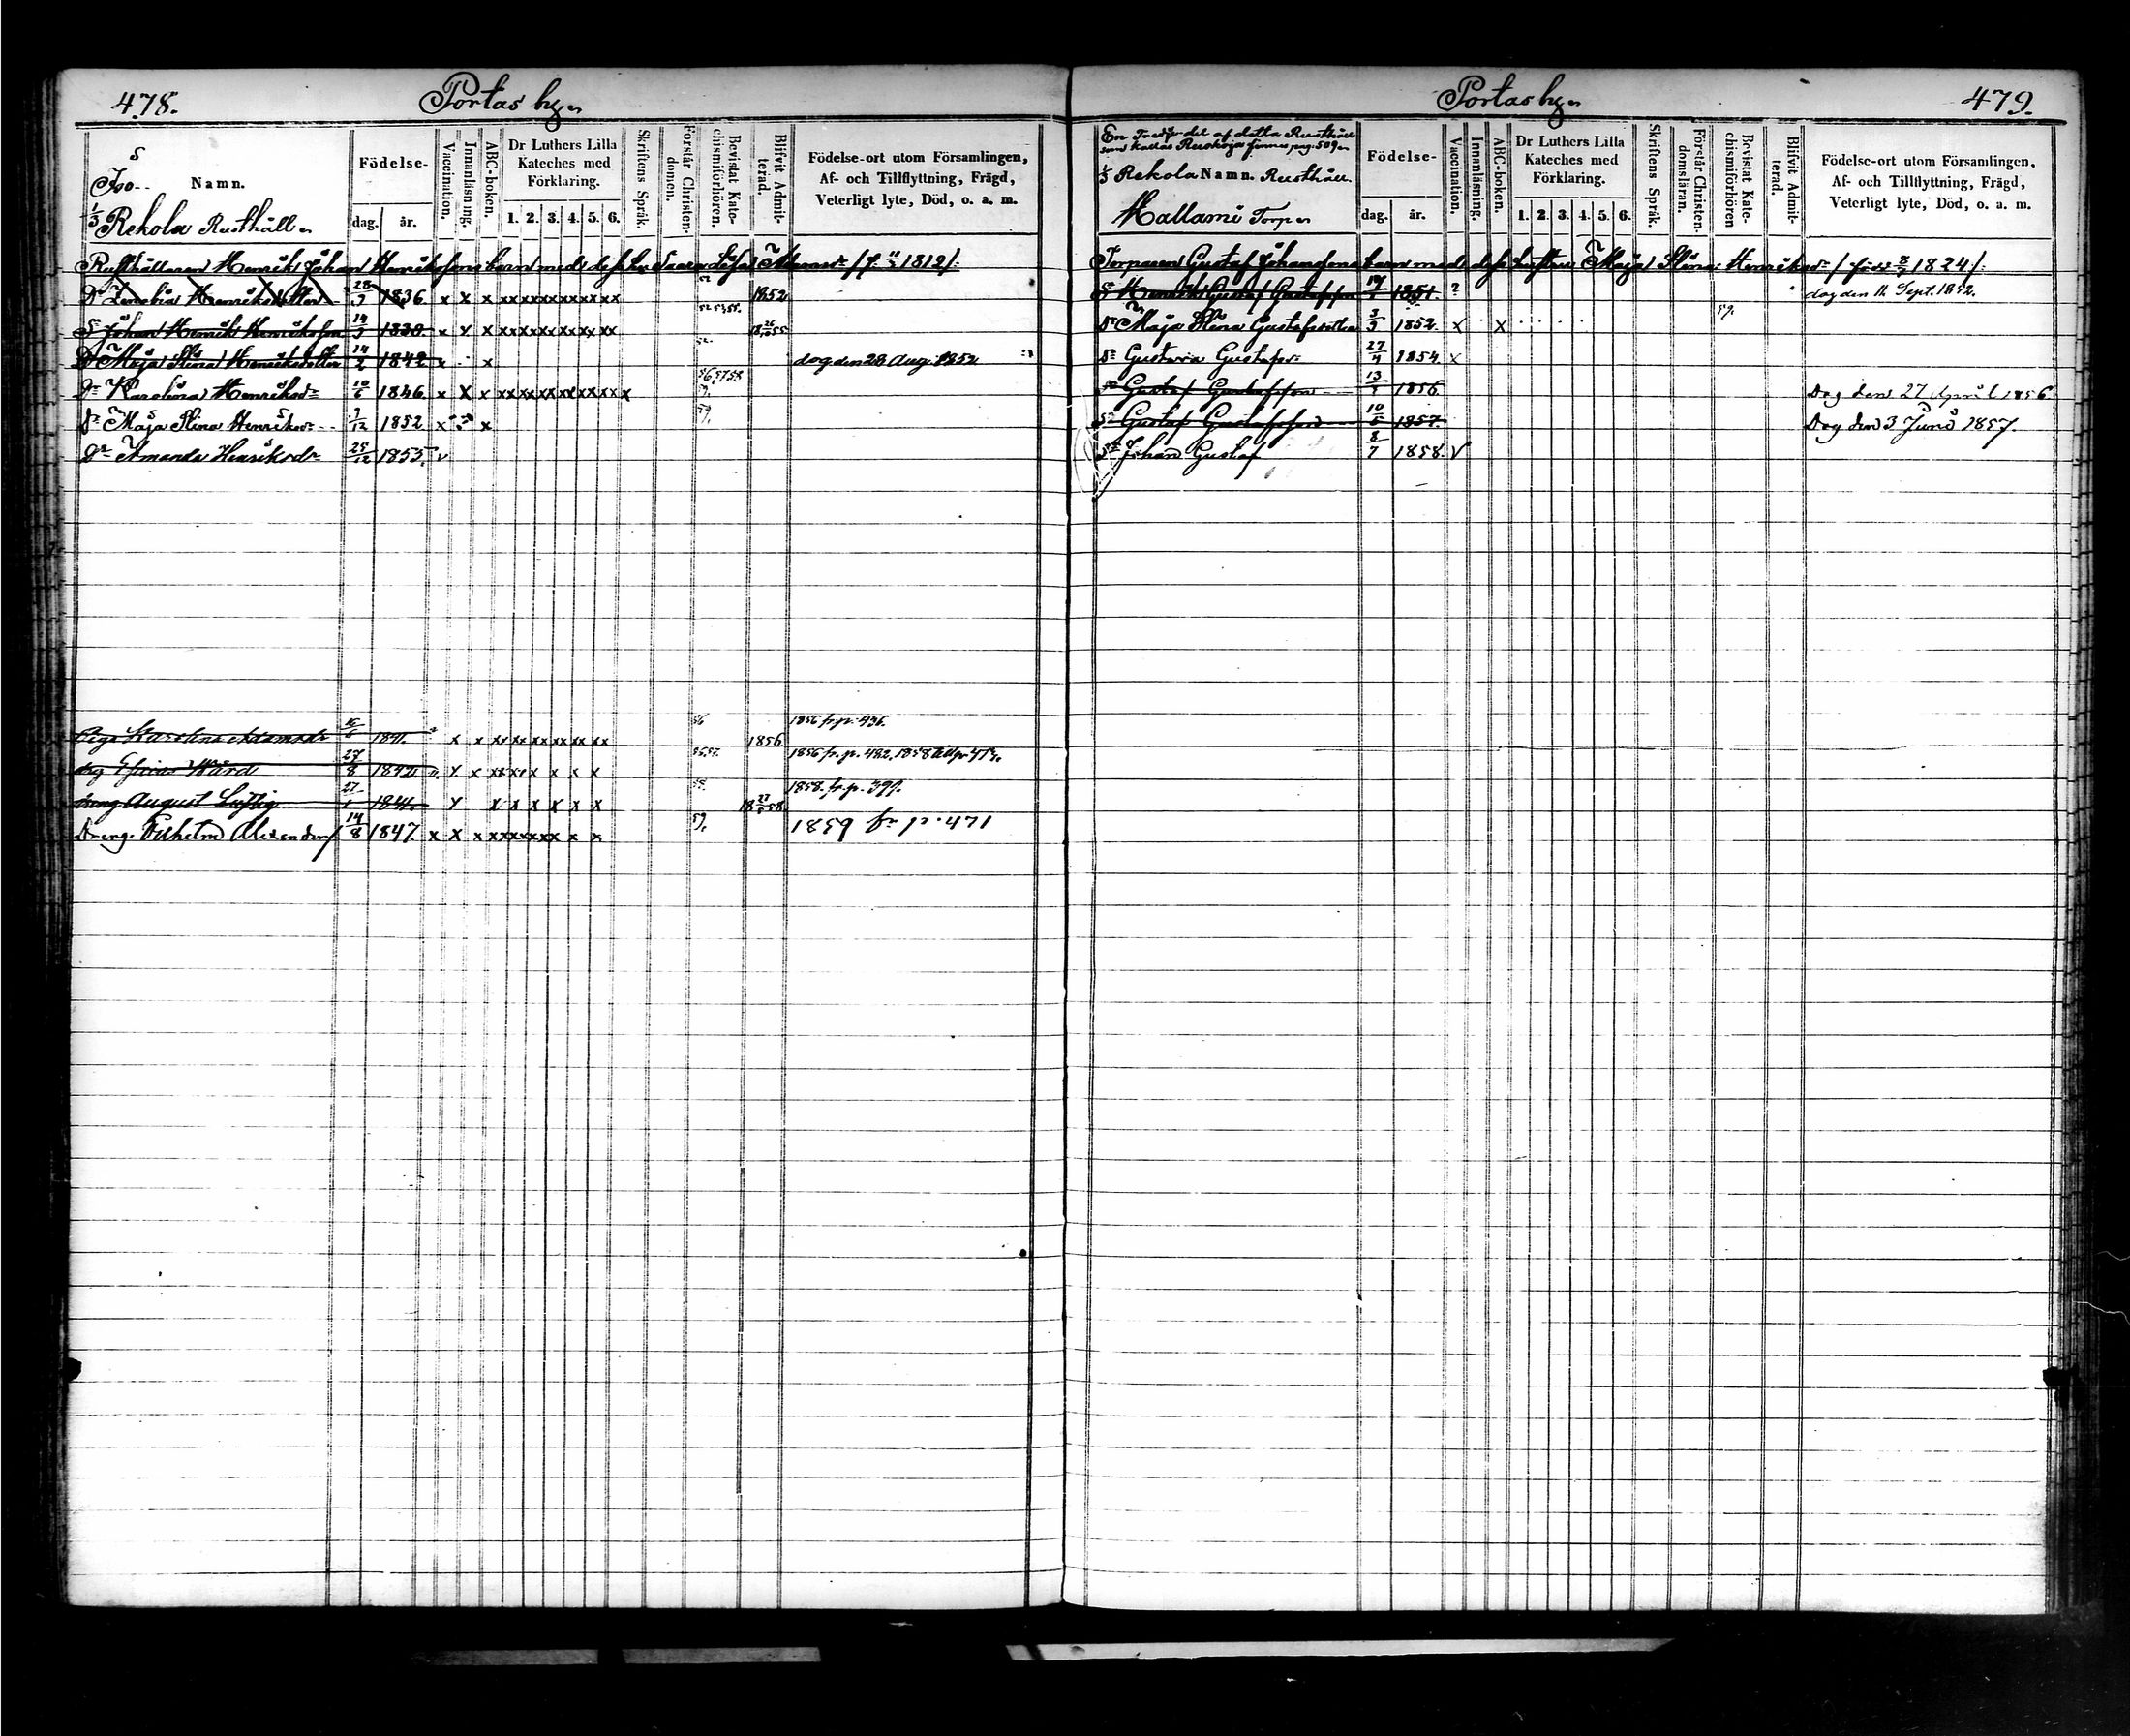 478. Portas by
Iso-- Namn.
1/3 Rekola Rusthåll
Födelse-
dag. år.
Vaccination.
Innanläsning.
ABC-boken.
Dr Luthers Lilla
Kateches med
Förklaring.
1. 2. 3. 4. 5. 6.
Skriftens Språk.
Förstår Christen-
domen.
Bevistat Kate-
chismiförhören.
Blifvit Admit-
terad.
Födelse-ort utom Församlingen,
Af- och Tillflyttning, Frägd,
Veterligt lyte, Död, o. a. m.
Rusthållaren Henrik Johan Henriksons barn med dess h. Lisa Adamsdr /f. 1812/:
Dr Zenobia Henriksdotter 28/3 1836 x x x xxxxxxxxxxxx 52 1852
S. Johan Henrik Henriksson 14/3 1838 x x x xxxxxxxxxxxx 55
Dr Maja Stina Henriksdotter 14/2 1842 x x 52. dog den 28 Aug. 1852
Dr Karolina Henriksdr 10/6 1846 x x x xxxxxxxxxxxx x 56 57 58
Dr Maja Stina Henriksdr 7/12 1852 x x 59.
Dr Amanda Henriksdr 25/12 1855. v
Piga Karolina Adamsdr 1841. x x xx xx xx xx xx xx 56 1856 1856 fr. p. 436.
drg Efraim Wård 27/8 1842 x x xx xx x x x x 1856 fr. p. 482. 1858 till p.
dreng August Luftig 27/1 1841. x x x x x x x 58. 18 27/ 58 1858. fr. p. 399.
Dreng. Vilhelm Alexanders 14/8 1847. x x x xx xx xx xx x x 59. 1859 fr
Portas by 479.
En Tredje del af detta Rusthåll
som kallas finnes pag. 509
1/3 Rekola Namn. Rusthåll.
Hallami Torp
Födelse-
dag. år.
Vaccination.
Innanläsning.
ABC-boken.
Dr Luthers Lilla
Kateches med
Förklaring.
1. 2. 3. 4. 5. 6.
Skriftens Språk.
Förstår Christen-
domsläran.
Bevistat Kate-
chismiförhören
Blifvit Admit-
terad.
Födelse-ort utom Församlingen,
Af- och Tillflyttning, Frägd,
Veterligt lyte, Död, o. a. m.
Torparen Gustaf Johanssons barn med dess hustru Maja Stina Henriksdr /född 1824/:
S. Henrik Gustaf Gustafsson 1851. ? dog den 11 Sept. 1852.
Dr Maja Stina Gustafsdotter 3/3 1852. x x 59.
Dr Gustava Gustafsdr 27/4 1854 x
Sn Gustaf Gustafsson 13/4 1856. Dog den 27 April 1856
Sn Gustaf Gustafsson 10/5 1857. Dog den 3 Juni 1857
Sn Johan Gustaf 8/7 1858. v